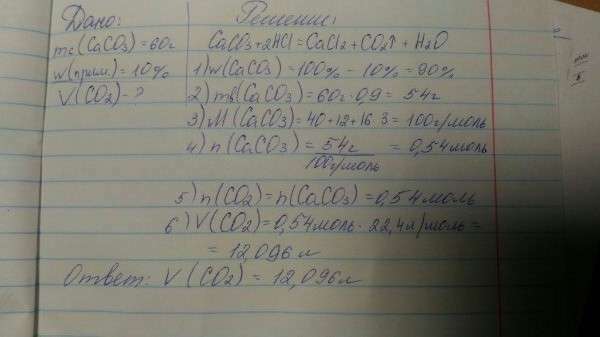 Дано:
mг(CaCO3)=60г
w(прим.)=10%
V(CO2)-?
Решение:
CaCO3+2HCl=CaCl2+CO2↑+H2O
1) w(CaCO3)=100%-10%=90%
2) mв(CaCO3)=60г·0,9=54г
3) M(CaCO3)=40+12+16·3=100г/моль
4) n(CaCO3)=54г/100г/моль=0,54моль
5) n(CO2)=n(CaCO3)=0,54моль
6) V(CO2)=0,54моль·22,4л/моль=
=12,096л
Ответ: V(CO2)=12,096л